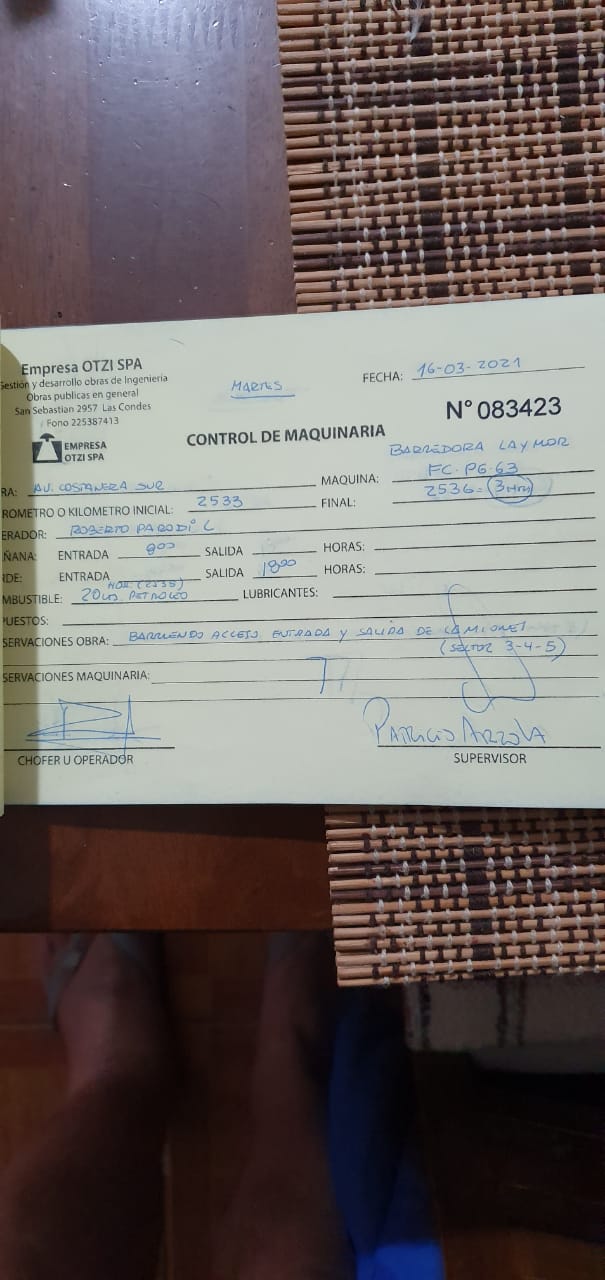 Empresa OTZI SPA
Gestión y desarrollo obras de Ingeniería
Obras publicas en general
San Sebastian 2957 Las Condes
Fono 225387413
EMPRESA
OTZI SPA
MARTES
FECHA: 16-03-2021
N° 083423
CONTROL DE MAQUINARIA
BARREDORA LAYMOR
RA: AV. COSTANERA SUR MAQUINA: FC·PG·63
ROMETRO O KILOMETRO INICIAL: 2533 FINAL: 2536=3HRS
ERADOR: ROBERTO PARODI C
ÑANA: ENTRADA 8:00 SALIDA HORAS:
RDE: ENTRADA SALIDA 18:00 HORAS:
HOR. (2535)
MBUSTIBLE: 20 LTS PETROLEO LUBRICANTES:
PUESTOS:
SERVACIONES OBRA: BARRIENDO ACCESO, ENTRADA Y SALIDA DE CAMIONES
(SECTOR 3-4-5)
SERVACIONES MAQUINARIA:
PATRICIO ARZOLA
CHOFER U OPERADOR SUPERVISOR